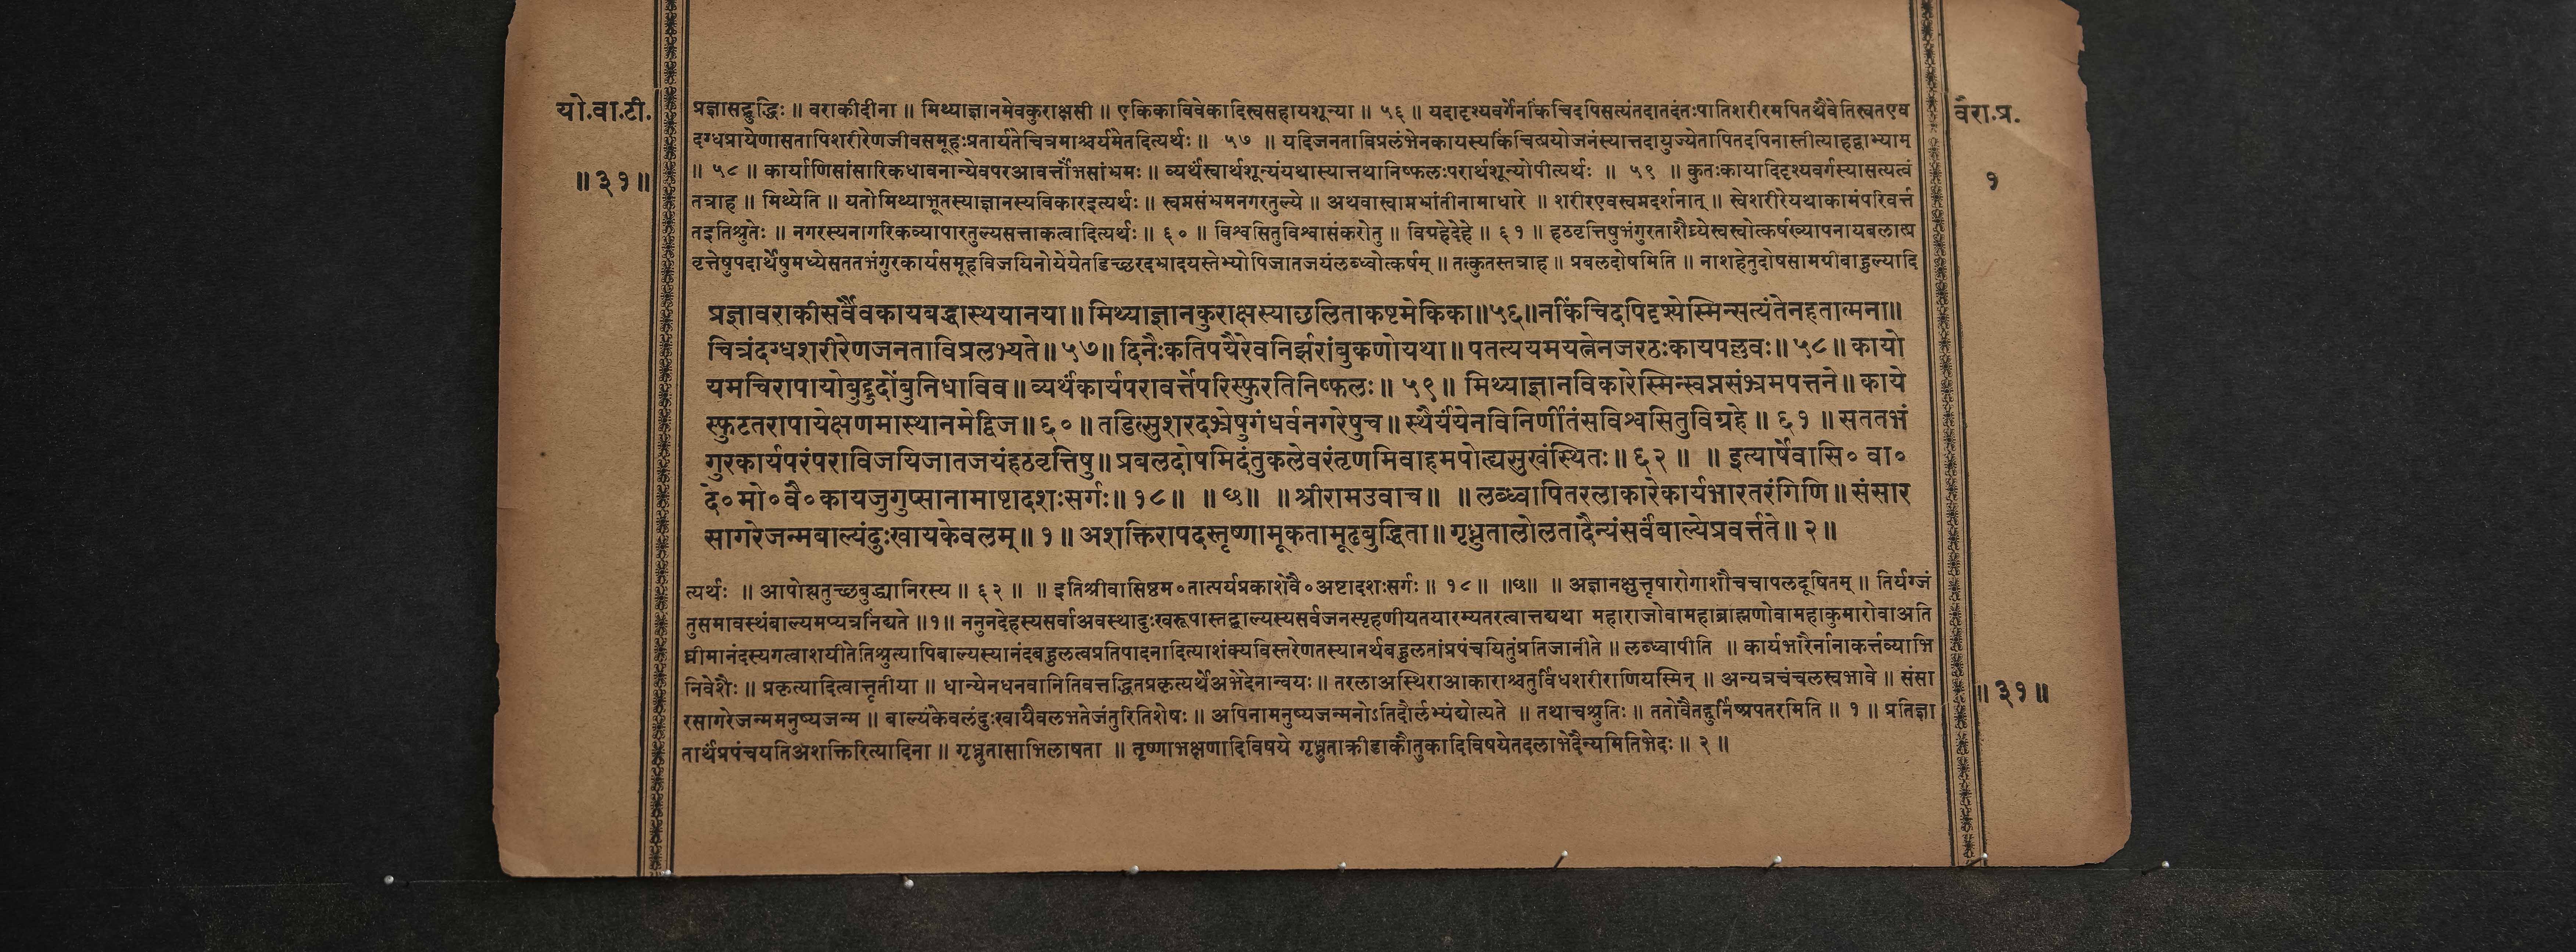 यो.वा.टी.
॥३१॥
प्रज्ञासद्बुद्धिः ॥ वराकीदीना ॥ मिथ्याज्ञानमेवकुराक्षसी ॥ एकिकाविवेकादिस्वसहायशून्या ॥ ५६ ॥ यदादृश्यवर्गेनकिंचिदपिसत्यंतदातदंतःपातिशरीरमपितथैवेतिस्वतएव
दग्धप्रायेणासतापिशरीरेणजीवसमूहःप्रतार्यतेचित्रमाश्चर्यमेतदित्यर्थः ॥ ५७ ॥ यदिजनताविप्रलंभेनकायस्यकिंचित्प्रयोजनंस्यात्तदायुज्येतापितदपिनास्तीत्याहद्वाभ्याम्
॥ ५८ ॥ कार्याणिसांसारिकधावनान्येवपरआवर्त्तोंभसांभ्रमः ॥ व्यर्थंस्वार्थशून्यंयथास्यात्तथानिष्फलःपरार्थशून्योपीत्यर्थः ॥ ५९ ॥ कुतःकायादिदृश्यवर्गस्यासत्यत्वं
तत्राह ॥ मिथ्येति ॥ यतोमिथ्याभूतस्याज्ञानस्यविकारइत्यर्थः ॥ स्वप्नसंभ्रमनगरतुल्ये ॥ अथवास्वाप्नभ्रांतीनामाधारे ॥ शरीरएवस्वप्नदर्शनात् ॥ स्वेशरीरेयथाकामंपरिवर्त्त
तइतिश्रुतेः ॥ नगरस्यनागरिकव्यापारतुल्यसत्ताकत्वादित्यर्थः ॥ ६० ॥ विश्वसितुविश्वासंकरोतु ॥ विग्रहेदेहे ॥ ६१ ॥ हठवृत्तिषुभंगुरताशैघ्र्येस्वस्वोत्कर्षख्यापनायबलात्प्र
वृत्तेषुपदार्थेषुमध्येसततभंगुरकार्यसमूहविजयिनोयेयेतडिच्छरदभ्रादयस्तेभ्योपिजातजयंलब्ध्वोत्कर्षम् ॥ तत्कुतस्तत्राह ॥ प्रबलदोषमिति ॥ नाशहेतुदोषसामग्रीबाहुल्यादि
प्रज्ञावराकीसर्वैवकायबद्धास्ययानया॥मिथ्याज्ञानकुराक्षस्याछलिताकष्टमेकिका॥५६॥नकिंचिदपिदृश्येस्मिन्सत्यंतेनहतात्मना॥
चित्रंदग्धशरीरेणजनताविप्रलभ्यते॥५७॥दिनैःकतिपयैरेवनिर्झरांबुकणोयथा॥पतत्ययमयत्नेनजरठःकायपल्लवः॥५८॥कायो
यमचिरापायोबुद्बुदोंबुनिधाविव॥व्यर्थंकार्यपरावर्त्तेपरिस्फुरतिनिष्फलः॥ ५९॥ मिथ्याज्ञानविकारेस्मिन्स्वप्नसंभ्रमपत्तने॥काये
स्फुटतरापायेक्षणमास्थानमेद्विज॥६०॥तडित्सुशरदभ्रेषुगंधर्वनगरेषुच॥स्थैर्यंयेनविनिर्णीतंसविश्वसितुविग्रहे॥ ६१ ॥ सततभं
गुरकार्यपरंपराविजयिजातजयंहठवृत्तिषु॥प्रबलदोषमिदंतुकलेवरंतृणमिवाहमपोह्यसुखंस्थितः॥६२॥ ॥ इत्यार्षेवासि० वा०
दे०मो०वै०कायजुगुप्सानामाष्टादशःसर्गः॥१८॥ ॥ ७॥ ॥श्रीरामउवाच॥ ॥लब्ध्वापितरलाकारेकार्यभारतरंगिणि॥संसार
सागरेजन्मबाल्यंदुःखायकेवलम्॥१॥अशक्तिरापदस्तृष्णामूकतामूढबुद्धिता॥गृध्नुतालोलतादैन्यंसर्वंबाल्येप्रवर्त्तते॥२॥
त्यर्थः ॥ आपोह्यतुच्छबुद्ध्यानिरस्य ॥ ६२ ॥ ॥ इतिश्रीवासिष्ठम०तात्पर्यप्रकाशेवै०अष्टादशःसर्गः ॥ १८ ॥ ॥७॥ ॥ अज्ञानक्षुत्तृषारोगाशौचचापलदूषितम् ॥ तिर्यग्जं
तुसमावस्थंबाल्यमप्यत्रनिंद्यते ॥१॥ ननुनदेहस्यसर्वाअवस्थादुःखरूपास्तद्बाल्यस्यसर्वजनस्पृहणीयतयारम्यतरत्वात्तद्यथा महाराजोवामहाब्राह्मणोवामहाकुमारोवाअति
घ्नीमानंदस्यगत्वाशयीतेतिश्रुत्यापिबाल्यस्यानंदबहुलत्वप्रतिपादनादित्याशंक्यविस्तरेणतस्यानर्थबहुलतांप्रपंचयितुंप्रतिजानीते ॥ लब्ध्वापीति ॥ कार्यभारैर्नानाकर्त्तव्याभि
निवेशैः ॥ प्रकृत्यादित्वात्तृतीया ॥ धान्येनधनवानितिवत्तद्धितप्रकृत्यर्थेअभेदेनान्वयः ॥ तरलाअस्थिराआकाराश्चतुर्विधशरीराणियस्मिन् ॥ अन्यत्रचंचलस्वभावे ॥ संसा
रसागरेजन्ममनुष्यजन्म ॥ बाल्यंकेवलंदुःखायैवलभतेजंतुरितिशेषः ॥ अपिनामनुष्यजन्मनोऽतिदौर्लभ्यंद्योत्यते ॥ तथाचश्रुतिः ॥ ततोवैतद्दुर्निष्प्रपतरमिति ॥ १ ॥ प्रतिज्ञा
तार्थंप्रपंचयतिअशक्तिरित्यादिना ॥ गृध्नुतासाभिलाषता ॥ तृष्णाभक्षणादिविषये गृध्नुताक्रीडाकौतुकादिविषयेतदलाभेदैन्यमितिभेदः ॥ २ ॥
वैरा.प्र.
१
॥३१॥